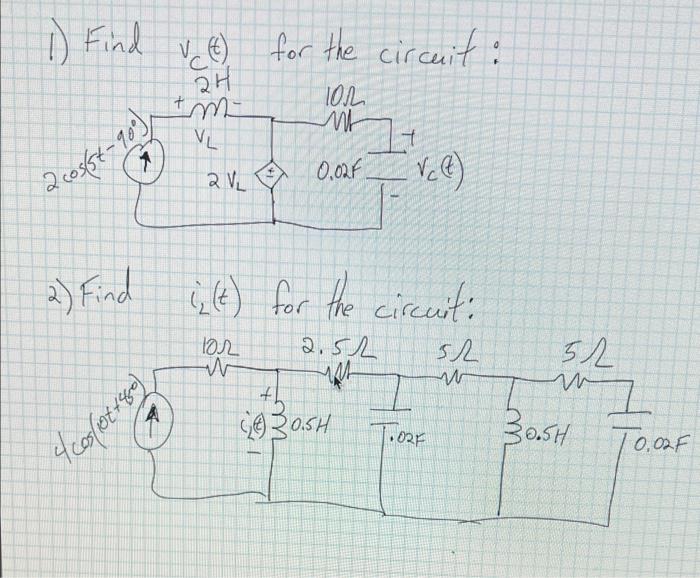 1) Find v_c(t) for the circuit:
2H
10Ω
+ -
V_L
2cos(5t-90°)
2V_L
+
-
0.02F
+
V_c(t)
-
2) Find i_L(t) for the circuit:
10Ω 2.5Ω 5Ω 5Ω
4cos(10t+45°)
+
i_L(t) 0.5H
-
.02F
0.5H
0.02F